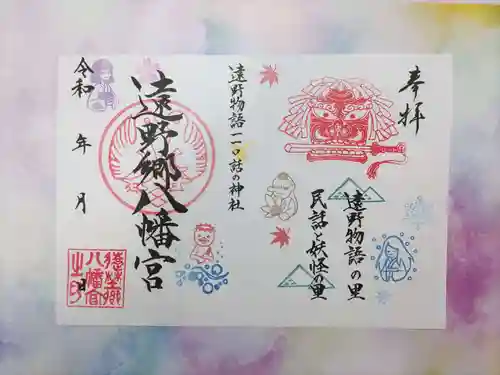 奉拝
遠野物語の里
民話と妖怪の里
遠野物語一一〇話の神社
遠野郷八幡宮
令和 年 月 日
遠野郷八幡宮之印